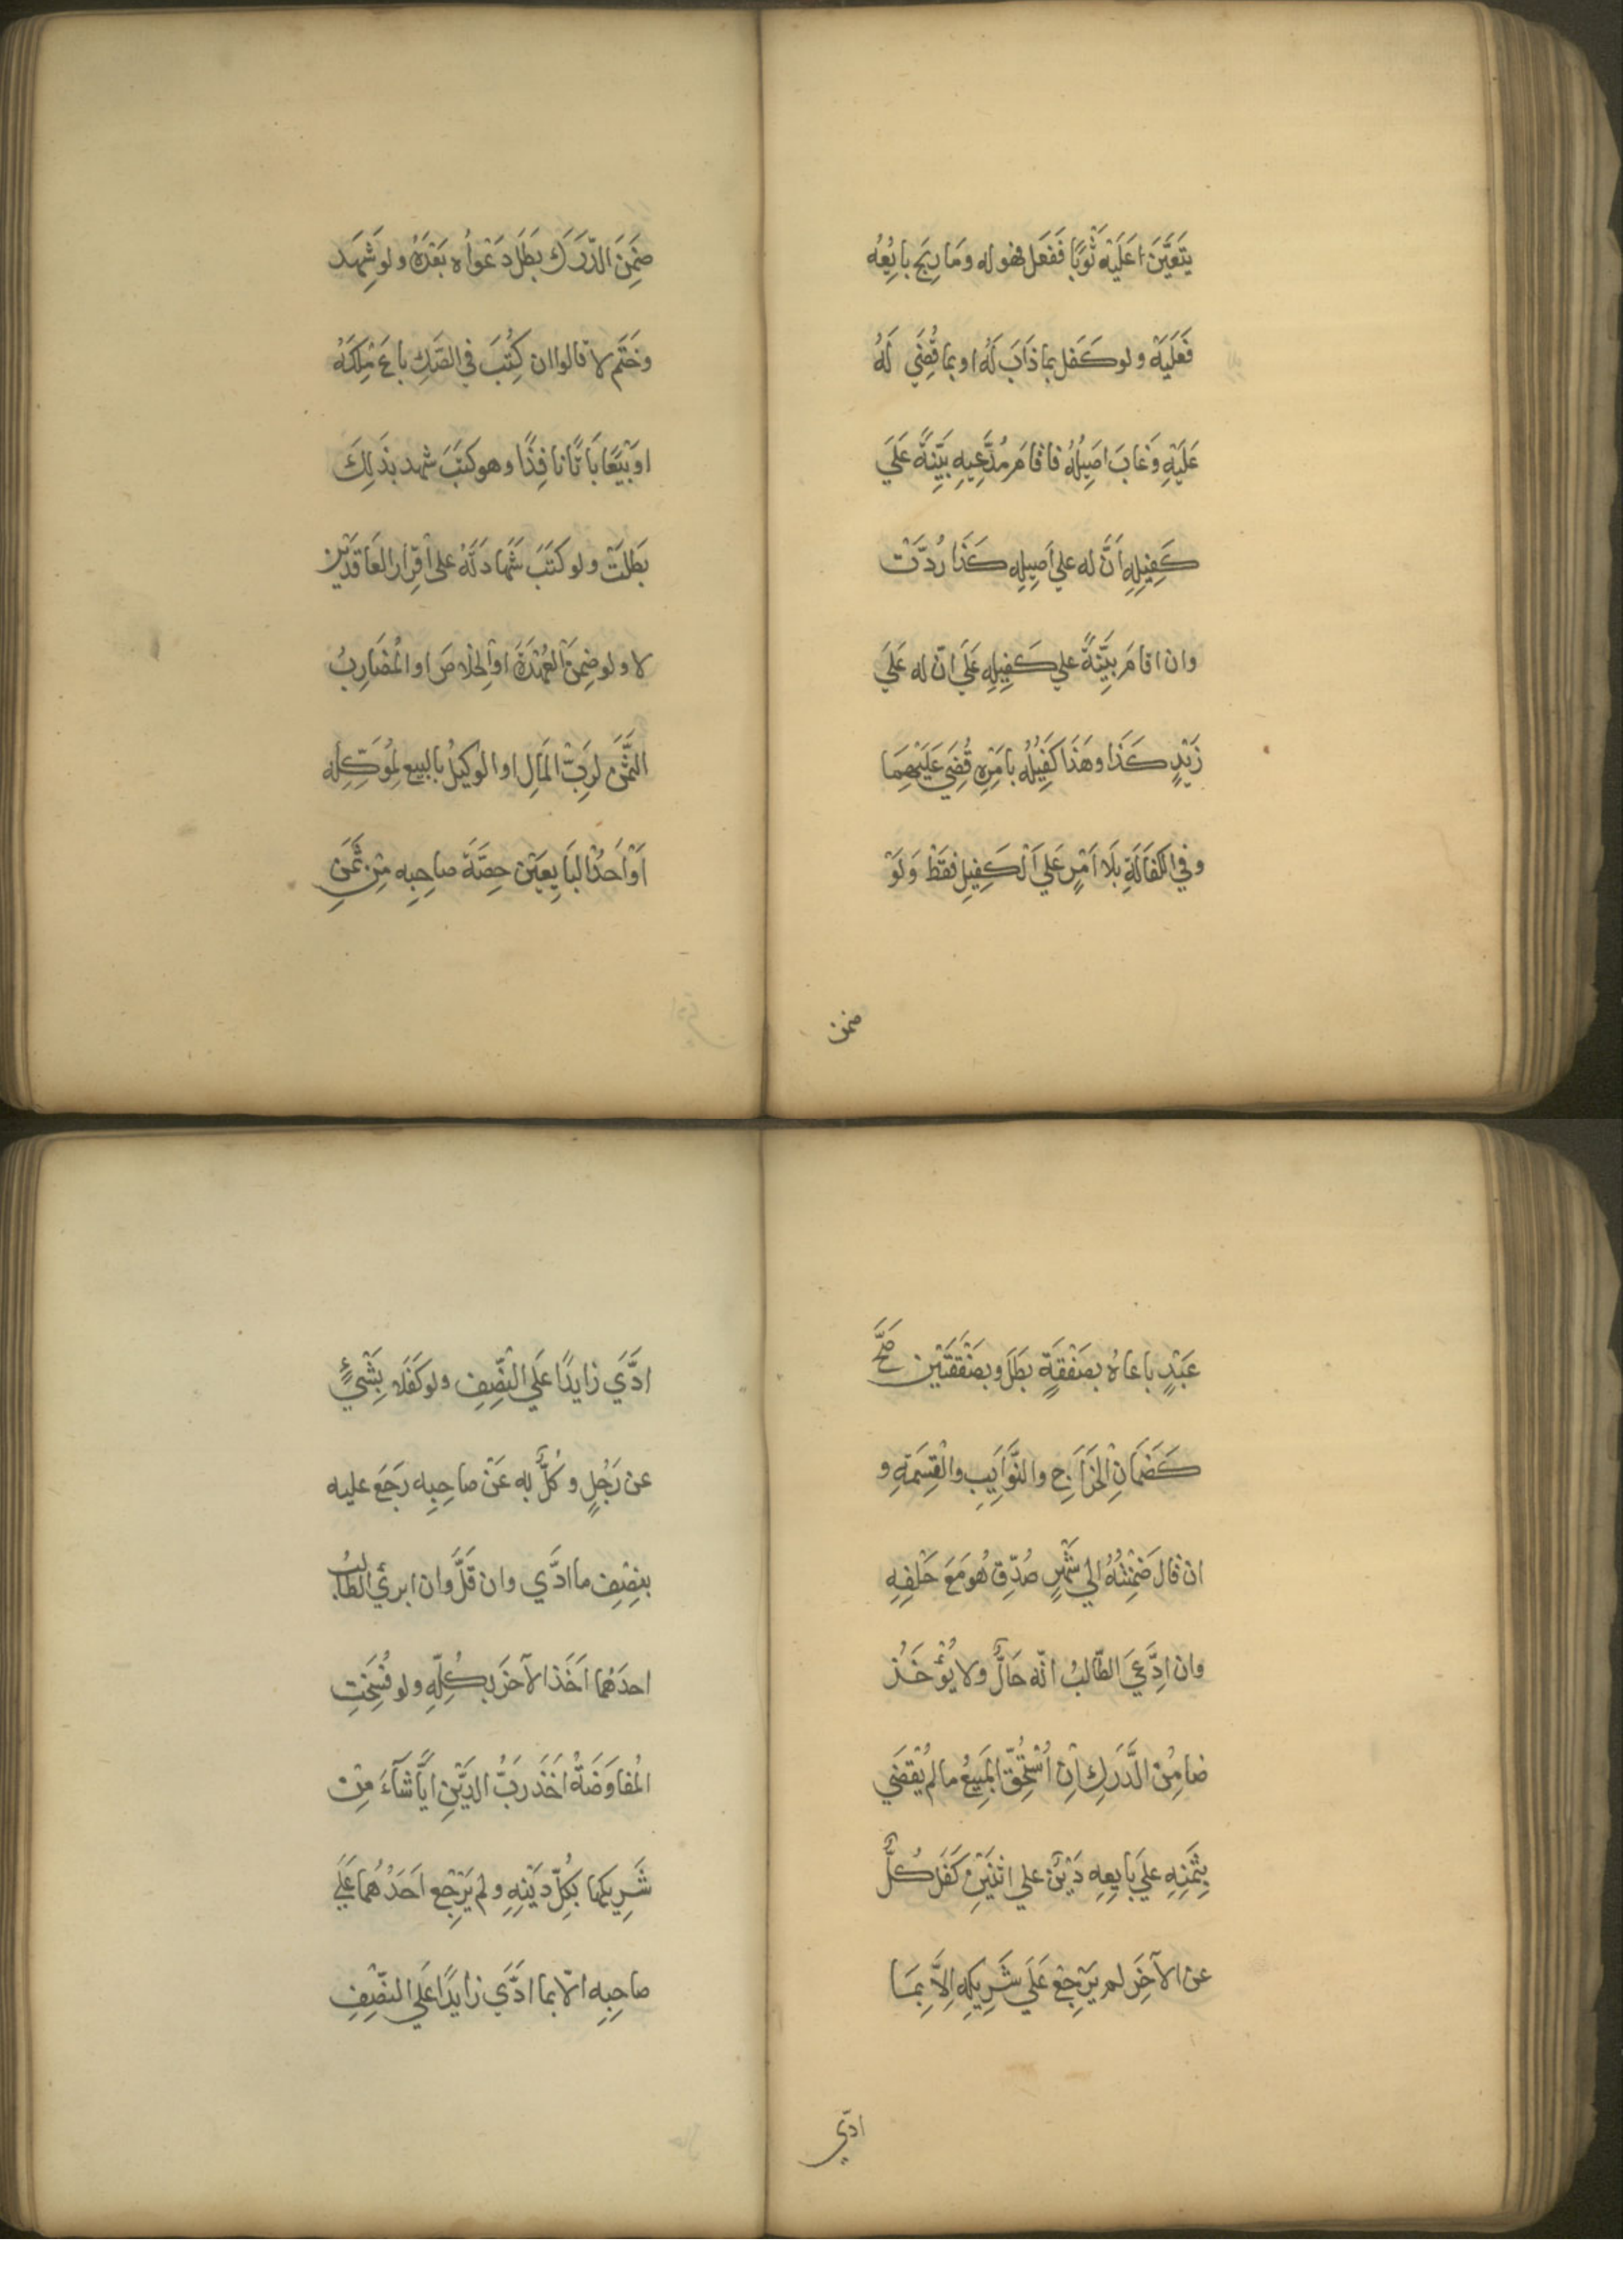 يَتَعَيَّنَ عَلَيْهِ ثَوْبًا فَفَعَل فهُو له وَمَا رَبِحَ بايِعُهُ
فَعَلَيْهِ ولو كَفَل بما ذَابَ لَهُ او بما قُضِيَ لَهُ
عَلَيْهِ وَغابَ اصِيلُهُ فاقامَ مُدَّعِيهِ بَيِّنَةً عَلَي
كَفِيلِهِ اَنَّ له علي اَصِيلِه كَذَا رُدَّتْ
وان اقامَ بيِّنَةً علي كَفِيلِهِ عَلَي انّ له عَلَي
زَيْدٍ كَذَا وهَذَا كَفِيلُهُ بامْرِهِ قُضِيَ عَلَيْهِمَا
وفي الكَفَالَةِ بَلَا اَمْرٍ عَلي اَلْكَفِيلِ فقَطْ وَلَوْ
ضمن
ضَمِنَ الدَّرَكَ بَطَلَ دَعْواُه بَعْدَهُ ولو شَهِدَ
وخَتَم لا قالوا ان كُتِبَ في الصَّكِ باعَ مِلْكَهُ
او بَيْعًا بَاتًّا نافِذًا وهو كَتَبَ شهد بذَلِكَ
بَطَلَتْ ولو كَتَبَ شَهادَتَهُ على اقِرارِ العَاقدَيْنِ
لا ولو ضَمِنَ العُهْدَةَ او الخَلاصَ او المُضَارِبُ
الثَّمَنَ لرَبِّ المَالِ او الوَكِيلُ بالبيع لمُوَكِّلِهِ
اَوْ اَحَدُ البَايِعَيْنِ حِصَّةَ صاحِبِه مِنْ ثَمَنِ
عَبْدٍ باعاهُ بصَفْقَةٍ بَطَلَ وبصَفْقَتَيْنِ صَحَّ
كَضَمَانِ الخَرَاجِ والنَّوَايِبِ والْقِسْمَةِ و
ان قالَ ضَمِنْتُهُ الي شَهْرٍ صُدِّقَ هُوَ مَعَ حَلْفِهِ
وان ادَّعَيَ الطَّالبُ انّه حَالٌّ ولا يُؤْخَذُ
ضامِنُ الدَّرَكِ اِنِ اُسْتُحِقَّ المَبِيعُ ما لم يُقْضَي
بثَمَنِهِ عَلَي بايِعِهِ دَيْنٌ علي اثنَيْنِ كَفَلَ كُلٌّ
عن الآخَرِ لم يَرْجِعْ عَلَى شَرِيكِهِ اِلاَّ بِمَا
ادّي
ادَّي زايدًا عَلَي النِّصْفِ ولو كَفَلا بِشَيْءٍ
عن رَجُلٍ وكُلٌّ به عَنْ صاحِبِه رَجَعَ عليه
بنِصْفِ ما ادَّي وان قَلَّ وان ابرئ الطالبُ
احدَهُما اَخَذَ الآخَرَ بكُلِّهِ ولو فُسِخَتِ
المُفاوَضَةُ اَخَذَ رَبُّ الدَّيْنِ ايًّا شَآءَ مِنْ
شَرِيكها بكُلِّ دَيْنِهِ ولم يَرْجِع اَحَدُهُما عَلَي
صاحِبِه الّا بما ادَّي زايدًا عَلَي النّصْفِ